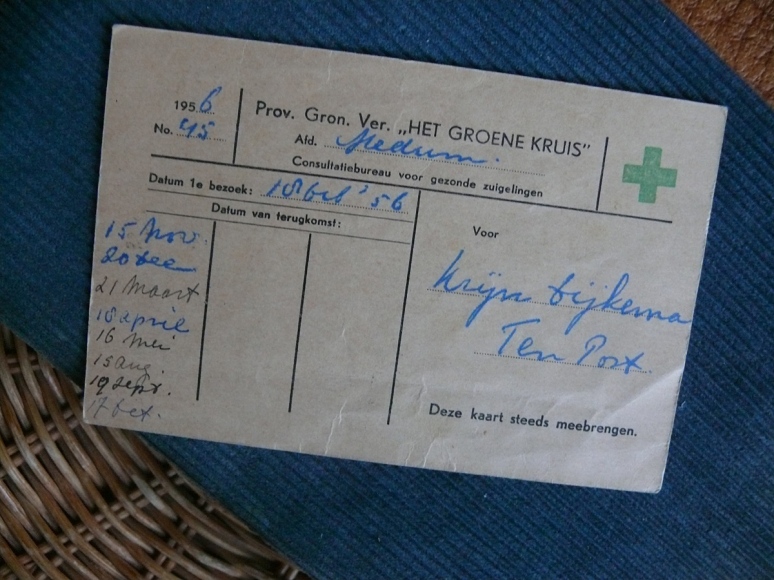 1956
No. 45
Prov. Gron. Ver. „HET GROENE KRUIS”
Afd. Stedum.
Consultatiebureau voor gezonde zuigelingen
Datum 1e bezoek: 18 oct '56
Datum van terugkomst:
15 Nov.
20 dec
21 Maart
18 april
16 mei
15 aug.
19 sept.
17 oct.
Voor
Krijn Dijkema
Ten Post.
Deze kaart steeds meebrengen.